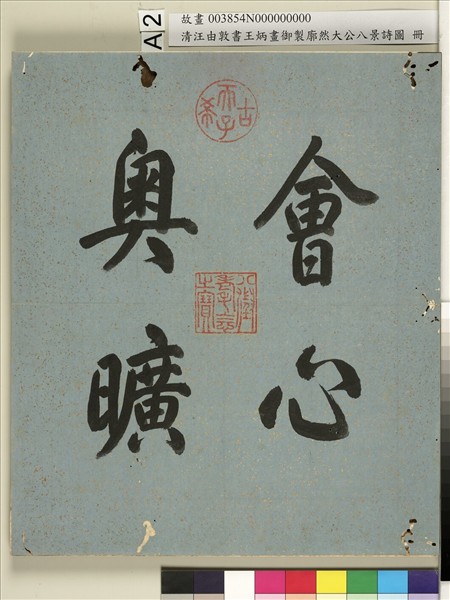 A2
故畫 003854N000000000
清汪由敦書王炳畫御製廓然大公八景詩圖 冊
會心
奧曠
古希天子
八徵耄念之寶